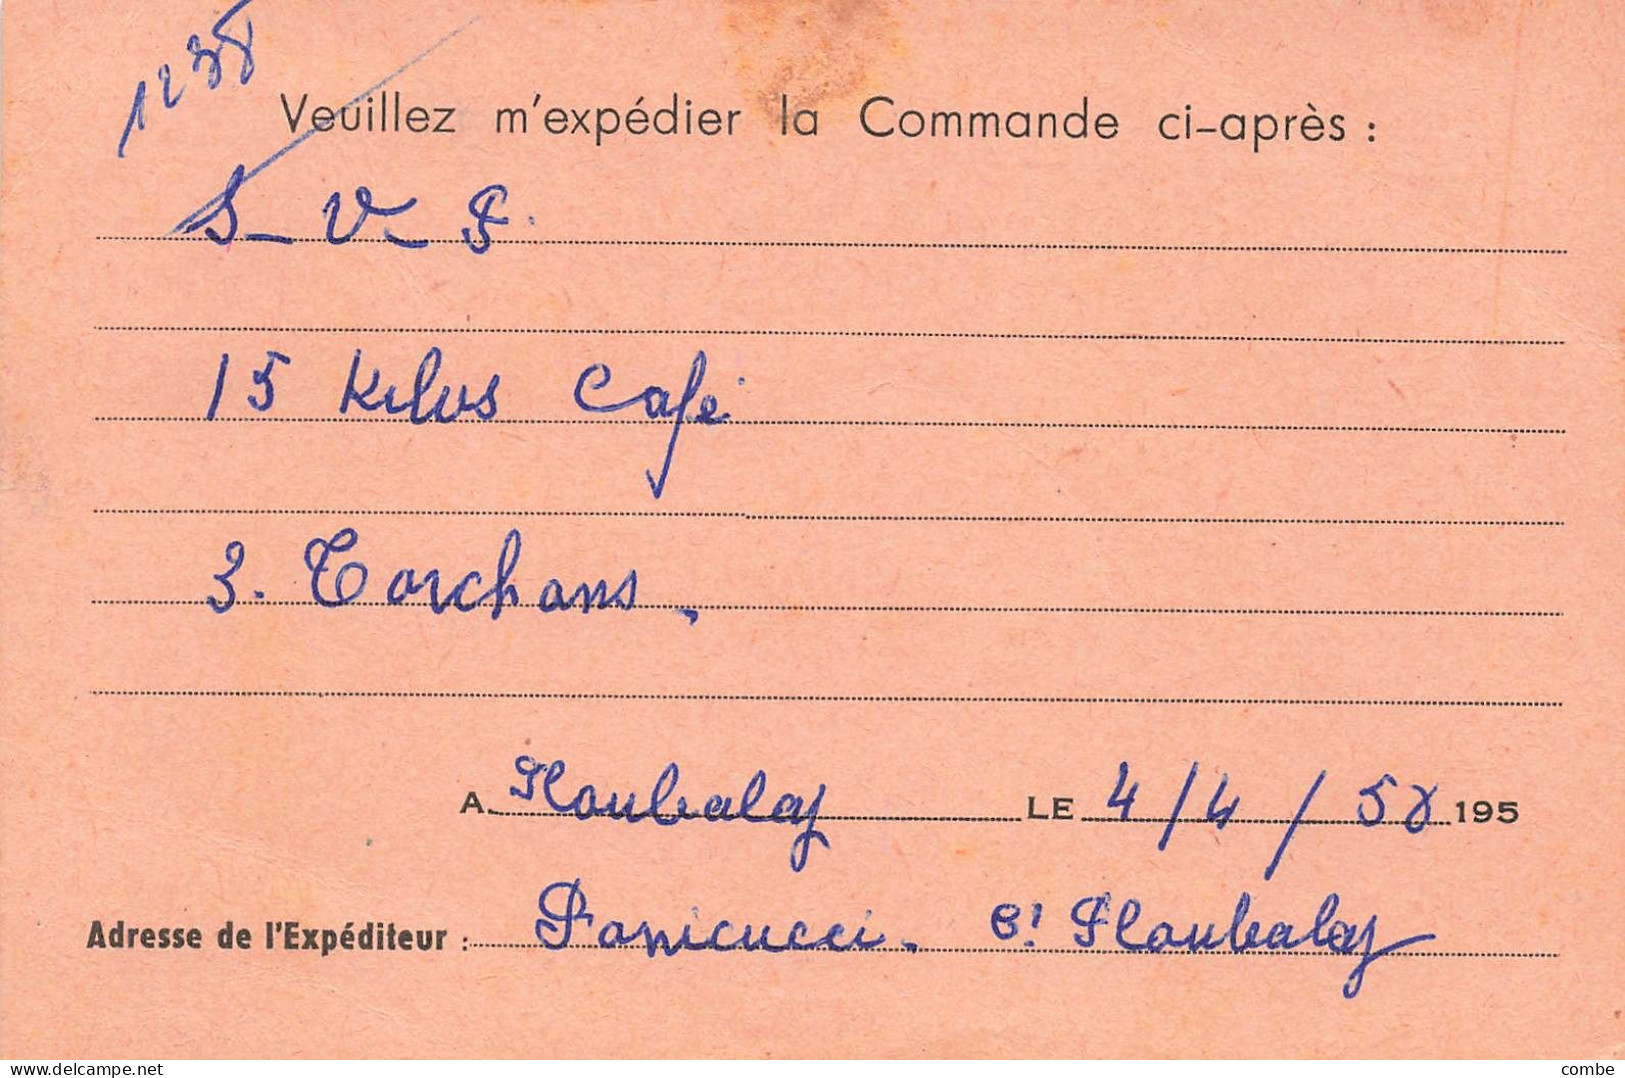 1238
Veuillez m'expédier la Commande ci-après :
S-V-P.
15 Kilos Café
3. Torchons.
A Ploubalay LE 4/4/58 195
Adresse de l'Expéditeur : Panicucci. Ploubalay
combe